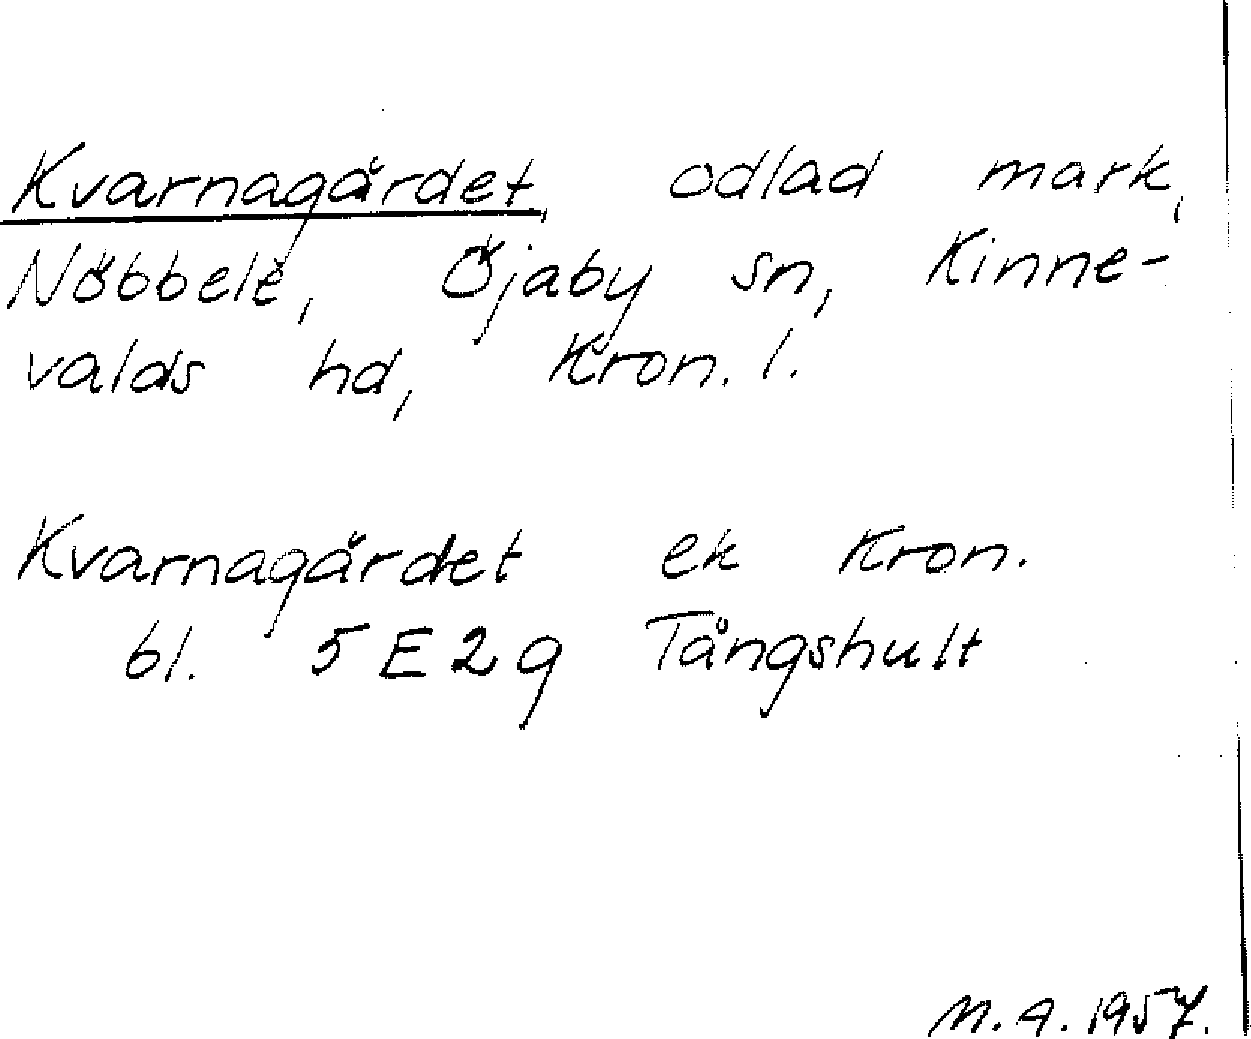 Kvarnagärdet, odlad mark,
Nöbbele, Öjaby sn, Kinne-
valds hd, Kron. l.
Kvarnagärdet ek Kron.
bl. 5 E 2 g Tångshult
M. A. 1957.